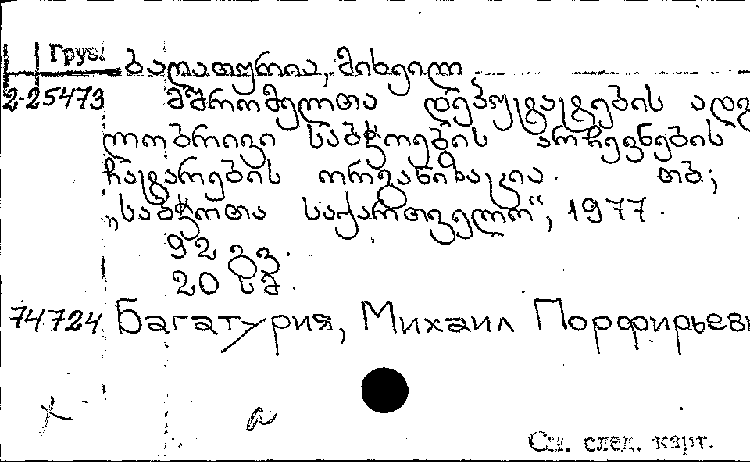 Груз.
ბაღათურია, მიხეილ
2-25473 მშრომელთა დეპუტატების ადგი
ლობრივი საბჭოების არჩევნების
ჩატარების ორგანიზაცია. თბ;
„საბჭოთა საქართველო“, 1977.
92 გვ.
20 სმ.
74724 Багатурия, Михаил Порфирьеви
x a
См. след. карт.